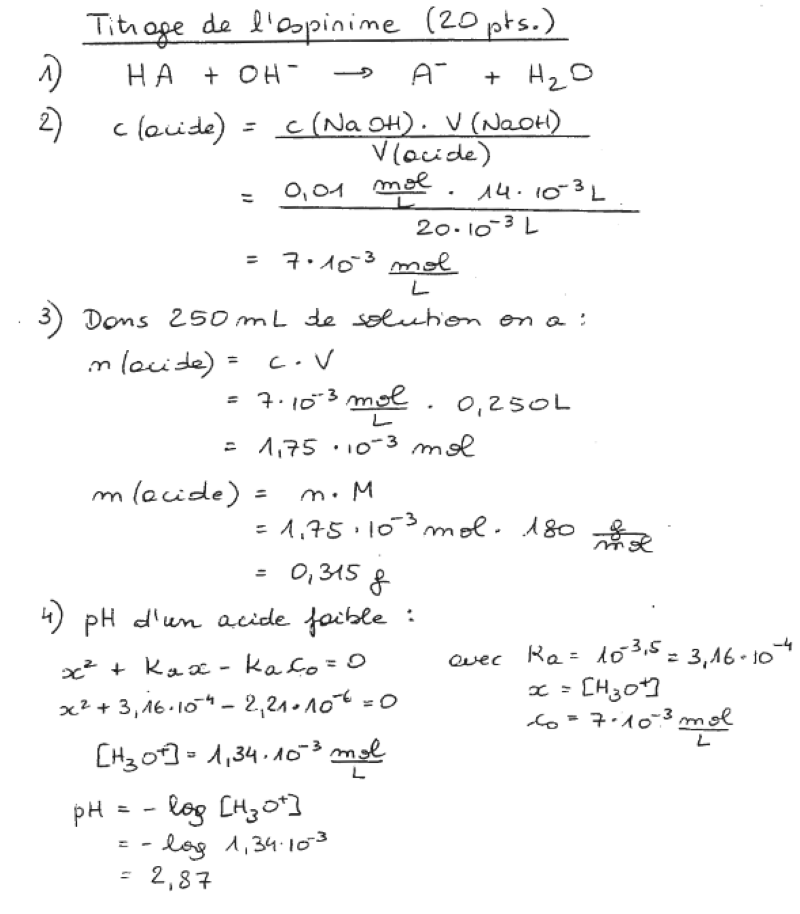 Titrage de l'aspirine (20 pts.)
1) HA + OH⁻ → A⁻ + H₂O
2) c(acide) = c(NaOH) · V(NaOH) / V(acide)
= 0,01 mol/L · 14·10⁻³ L / 20·10⁻³ L
= 7·10⁻³ mol/L
3) Dans 250 mL de solution on a :
n(acide) = c · V
= 7·10⁻³ mol/L · 0,250L
= 1,75 · 10⁻³ mol
m(acide) = n · M
= 1,75 · 10⁻³ mol · 180 g/mol
= 0,315 g
4) pH d'un acide faible :
x² + Kax - Kac₀ = 0 avec Ka = 10⁻³,⁵ = 3,16·10⁻⁴
x = [H₃O⁺]
x² + 3,16·10⁻⁴ - 2,21·10⁻⁶ = 0
c₀ = 7·10⁻³ mol/L
[H₃O⁺] = 1,34·10⁻³ mol/L
pH = - log [H₃O⁺]
= - log 1,34·10⁻³
= 2,87